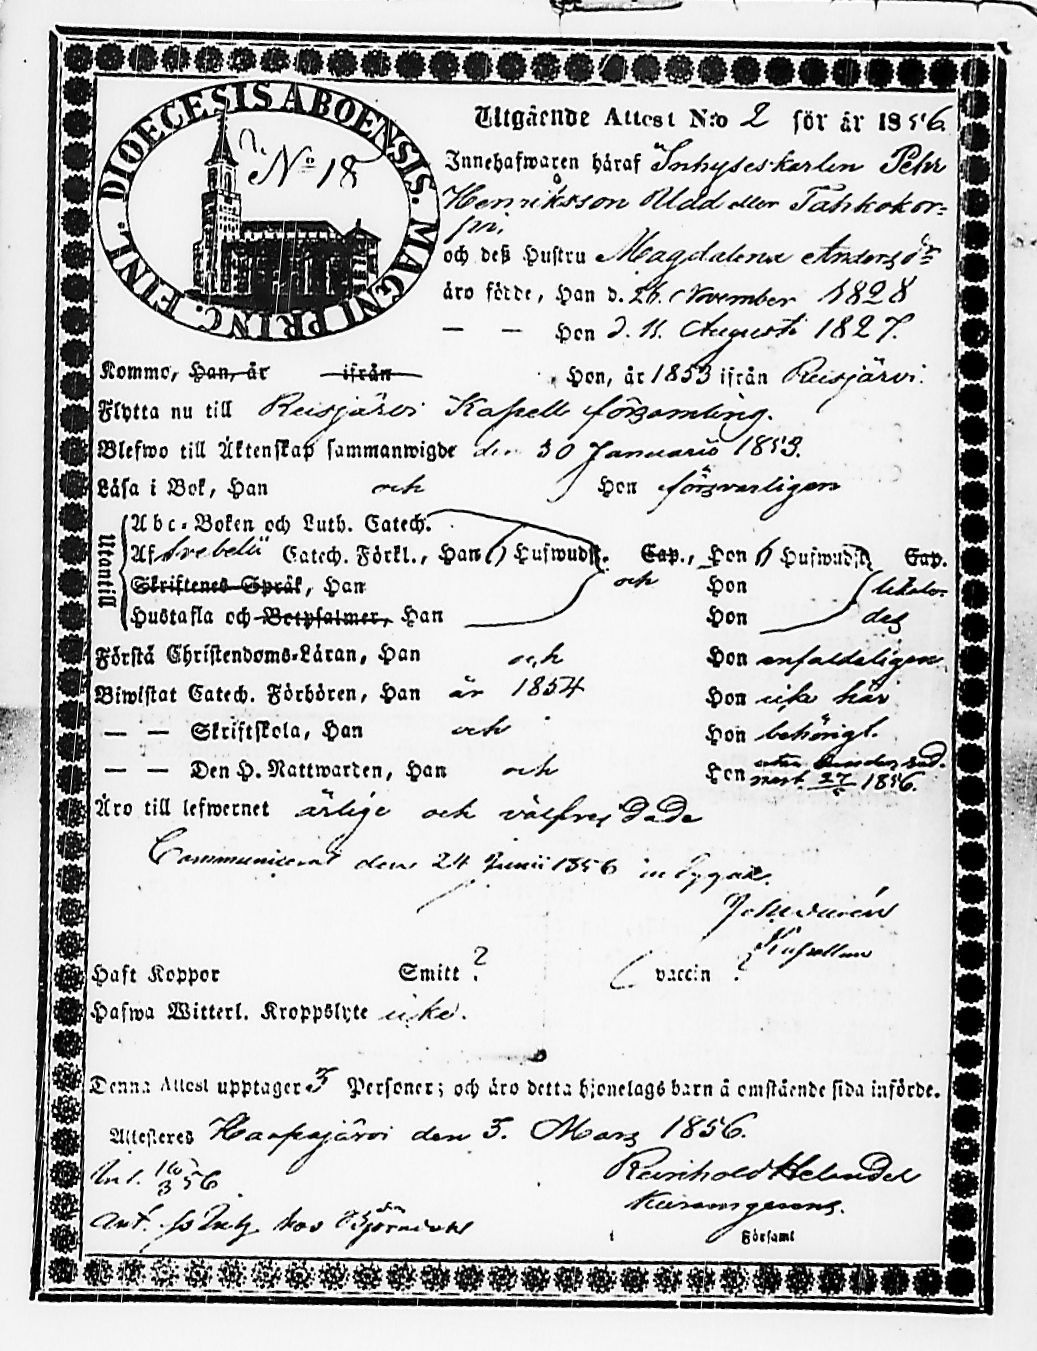 DIOECESIS ABOENSIS. MAGNI PRINC. FINL.
N:o 18
Utgående Attest N:o 2 för år 1856.
Innehafwaren häraf Inhyseskarlen Pehr
Henriksson Ulad eller Tahkokor=
pi,
och deß Hustru Magdalena Andersdr
äro födde, Han d. 26. November 1828
— — Hon d. 11. Augusti 1827.
Kommo, Han, år ifrån Hon, år 1853 ifrån Reisjärvi.
Flytta nu till Reisjärvi Kapell församling.
Blefwo till Äktenskap sammanwigde den 30 Januarii 1853.
Läsa i Bok, Han och Hon försvarligen
Utantill
Abc-Boken och Luth. Catech.
Af Svebelii Catech. Förkl., Han 6 Hufwudst. Cap., Hon 6 Hufwudst. Cap.
Skriftenes Språk, Han och Hon likale-
Hustafla och Botpsalmer, Han Hon des
Förstå Christendoms-Läran, Han och Hon enfaldeligen
Biwistat Catech. Förhören, Han år 1854 Hon icke här
— — Skriftskola, Han och Hon behörigt.
— — Den H. Nattwarden, Han och Hon
27 1856.
Äro till lefwernet ärlige och välfrejdade
Communicerat den 24 Junii 1856 in
Kapellan
Haft Koppor Smitt ? vaccin ?
Hafwa Witterl. Kroppslyte icke.
Denna Attest upptager 3 Personer; och äro detta hjonelags barn å omstående sida införde.
Attesteres Haapajärvi den 3. Mars 1856.
Reinhold Helander
3 56
Björndahl
Församl